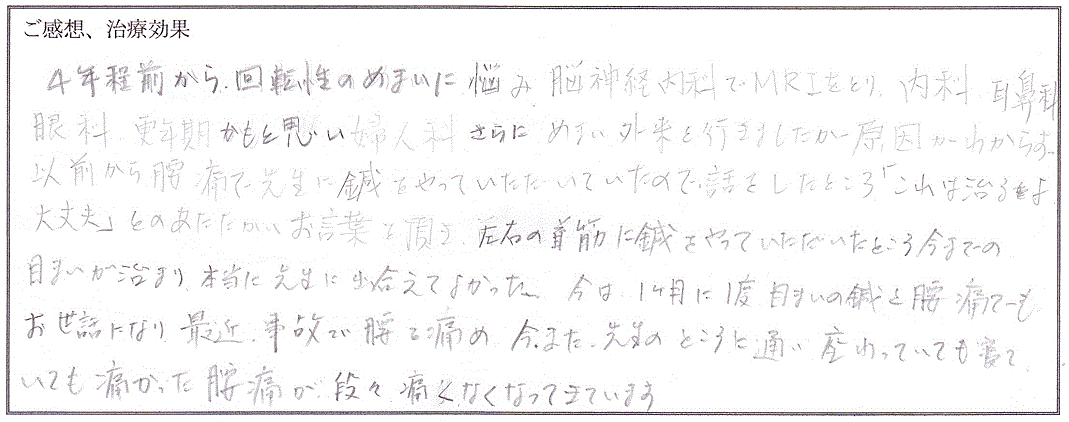 ご感想、治療効果
4年程前から、回転性のめまいに悩み、脳神経内科でMRIをとり、内科、耳鼻科
眼科、更年期かもと思い婦人科さらにめまい外来と行きましたが原因がわからず、
以前から腰痛で先生に鍼をやっていただいていたので、話をしたところ「これは治るよ
大丈夫」とのあたたかいお言葉を頂き、左右の首筋に鍼をやっていただいたところ今までの
目まいが治まり、本当に先生に出合えてよかった。今は、1ヶ月に1度目まいの鍼と腰痛でも
お世話になり、最近、事故で腰を痛め、今、また、先生のところに通い座わっていても寝て
いても痛かった腰痛が、段々、痛くなくなってきています